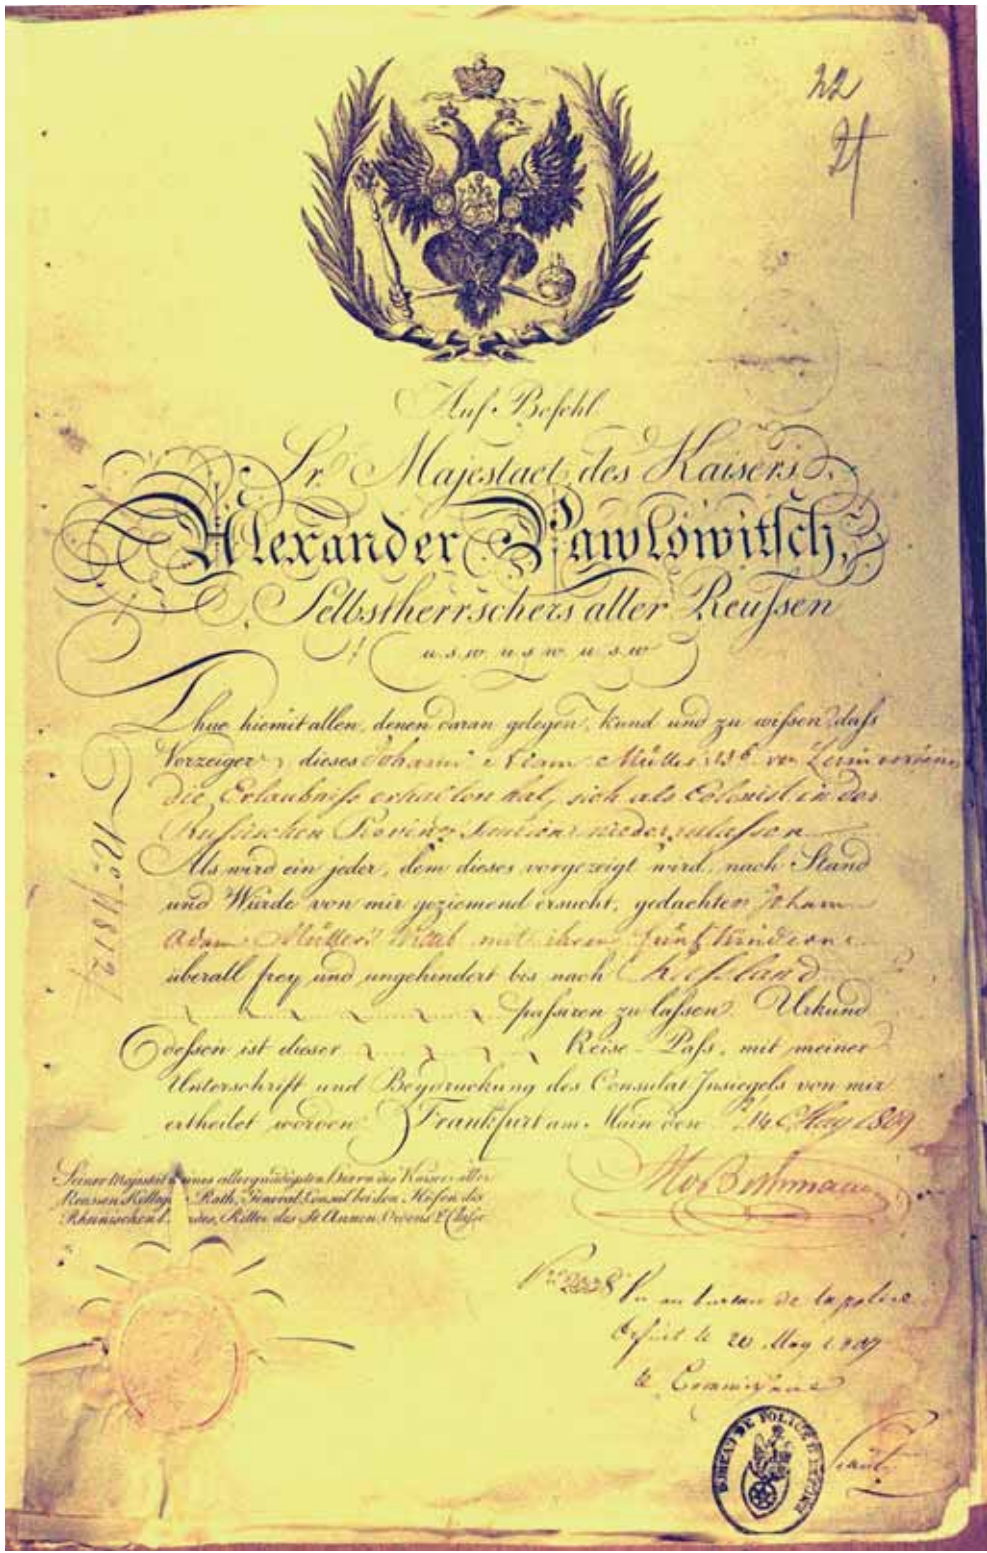 22
21
Auf Befehl
Sr. Majestaet des Kaisers
Alexander Pawlowitsch,
Selbstherrschers aller Reußen
u. s. w. u. s. w. u. s. w.
Thue hiemit allen, denen daran gelegen, kund und zu wissen, daß
Vorzeiger dieses Johann Adam Müller von
die Erlaubniß erhalten hat, sich als Colonist in der
Russischen Provinz niederzulassen
Als wird ein jeder, dem dieses vorgezeigt wird, nach Stand
und Würde von mir geziemend ersucht, gedachten Johann
Adam Müller's Weib mit ihren fünf Kindern
überall frey und ungehindert bis nach Rußland
passiren zu lassen. Urkund
dessen ist dieser Reise-Pass, mit meiner
Unterschrift und Beydruckung des Consulat Insiegels von mir
ertheilet worden Frankfurt am Main den 14 May 1809
Seiner Majestät meines allergnädigsten Herrn des Kaisers aller
Reussen Kollegien Rath, General Consul bei den Höfen des
Rheinischen Bundes, Ritter des St. Annen Ordens 2. Classe
Bethmann
Vu au bureau de la police
Erfurt le 20 May 1809
le Commissaire
BUREAU DE POLICE D'ERFURT